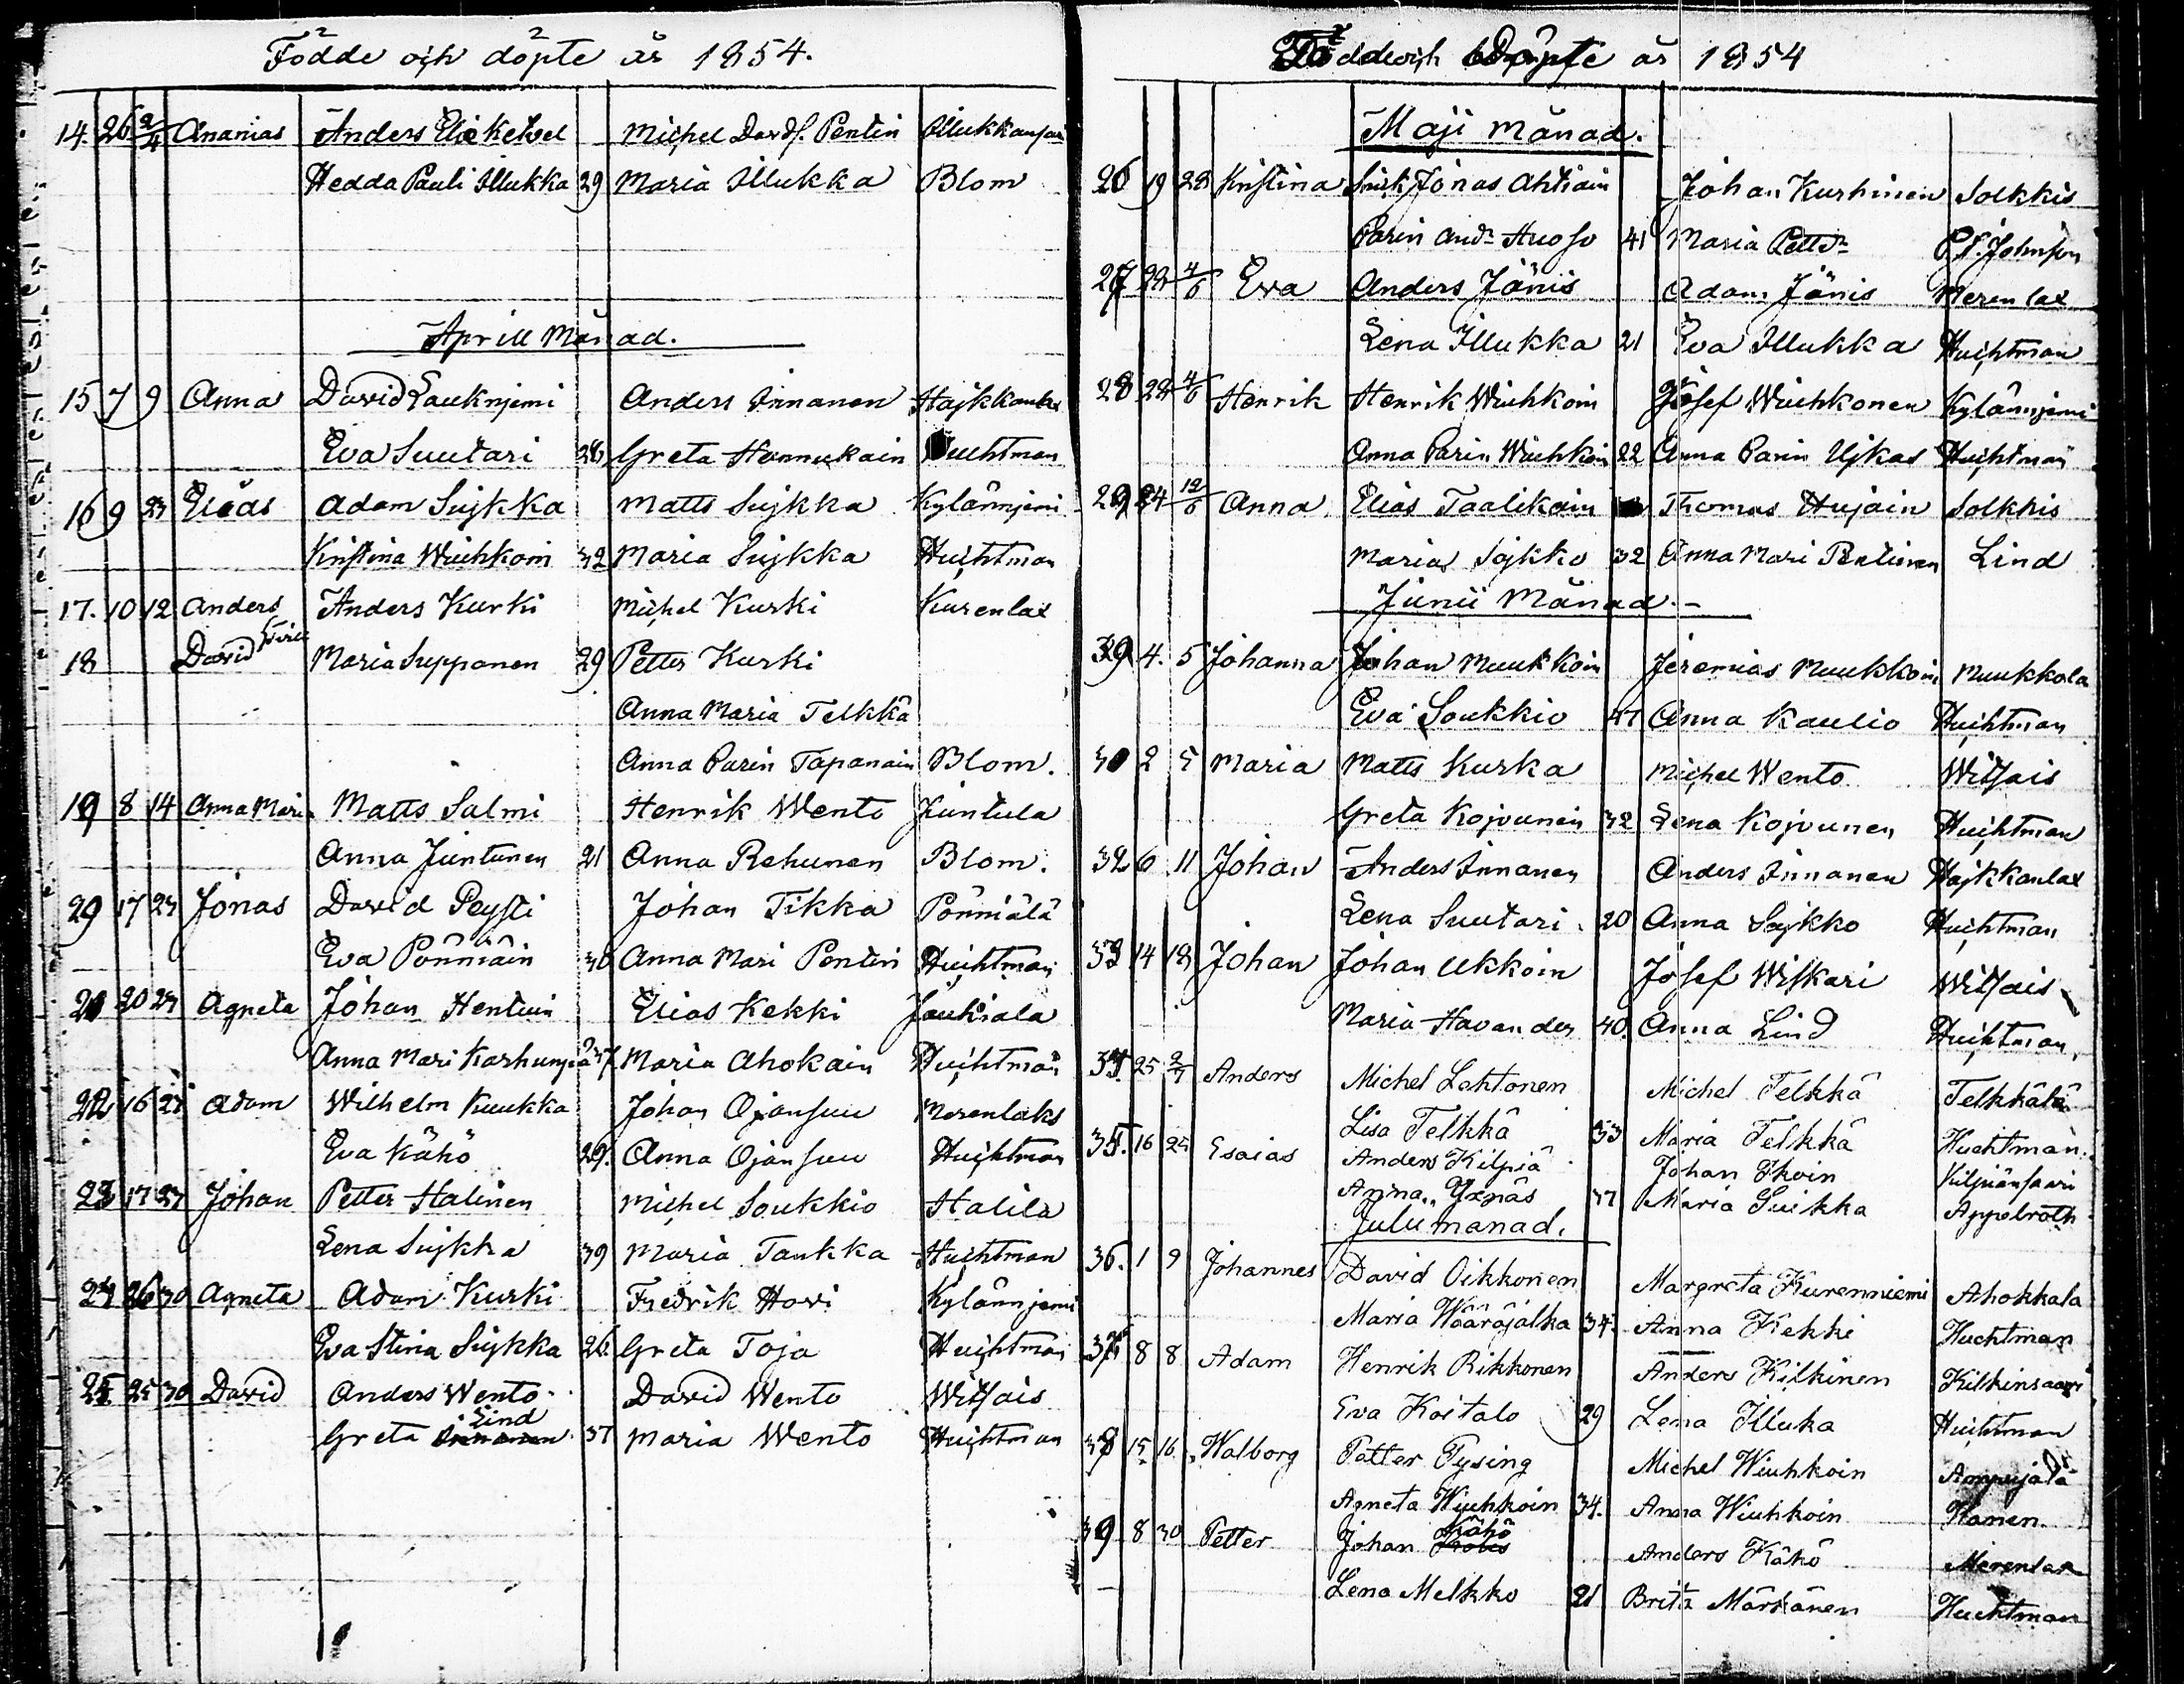 Födde och döpte år 1854.
14. 26 2/4 Ananias Anders Michel Davds. Pentin
Hedda Pauli Illukka 29 Maria Illukka Blom
Aprill Månad.
15 7 9 Anna David Lauknjemi Anders Innanen Hajkkanlax
Eva Suutari 28 Greta Hannukain Huchtman
16 9 23 Elias Adam Sujkka Matts Sujkka Kylännjemi
Kristina Wiuhkoin 32 Maria Sujkka Huchtman
17. 10 12 Anders Anders Kurki Michel Kurki Kurenlax
18 David Maria Suppanen 29 Petter Kurki
Anna Maria Telkkä
Anna Parin Tapanain Blom.
19 8 14 Anna Mari Matts Salmi Henrik Wento Juntula
Anna Juntunen 21 Anna Rehunen Blom.
20 17 23 Jonas David Peysti Johan Tikka Pönniälä
Eva Pönniäin Anna Mari Pentin Huchtman
21 20 23 Agneta Johan Hentuin Elias Kekki Jaukiala
Anna Mari 37 Maria Ahokain Huchtman
22 16 Adam Wilhelm Kuukka Johan Ojansuu Merenlaks
Eva Kähö 29. Anna Ojansuu Huchtman
23 17 27 Johan Petter Halinen Michel Soukkio Halila
Lena Sujkka 39 Maria Taukka Huchtman
24 26 30 Agneta Adam Kurki Fredrik Hovi Kylännjemi
Eva Stina Sujkka 26 Greta Toja Huchtman
25 25 30 David Anders Wento David Wento Witsais
Greta Lind 37 Maria Wento Huchtman
Födde och Döpte år 1854
Maji Månad.
26 19 28 Kristina Jonas Ahtiain Johan Kurhinen Solkkis
Parin And:r Huoso 41 Maria Petter P.S. Johnson
27 28 4/6 Eva Anders Jänis Adam Jänis Merenlax
Lena Illukka 21 Eva Illukka Huchtman
28 28 4/6 Henrik Henrik Wiuhkoin Josef Wiuhkonen Kylännjemi
Anna Parin Wiuhkoin 22 Anna Parin Ujkas Huchtman
29 24 12/6 Anna Elias Taalikain Thomas Hujain Solkkis
Maria Sojkko 32 Anna Mari Pentinen Lind
Junii Månad.
4. 5 Johanna Johan Muukkoin Jeremias Muukkoin Muukkola
Eva Soukkio 47 Anna Kaulio Huchtman
2 5 Maria Matts Kurka Michel Wento Witsais
Greta Kojvunen 32 Lena Kojvunen Huchtman
32 6 11 Johan Anders Innanen Anders Innanen Hajkkanlax
Lena Suutari 20 Anna Sojkko Huchtman
33 14 18 Johan Johan Ukkoin Josef Wiskari Witsais
Maria Havander 40. Anna Lind Huchtman
34 25 2/7 Anders Michel Lehtonen Michel Telkkä Telkkälä
Lisa Telkkä 33 Maria Telkkä Huchtman
35. 16 25 Esaias Anders Kilpiä Johan Ikoin Kilpiänsaari
Anna Yxnäs 37 Maria Suikka Appelroth
Julii månad.
36. 1 9 Johannes David Oikkonen Margreta Kurenniemi Ahokkala
Maria Wääräjälka 34. Anna Kekki Huchtman
37 8 8 Adam Henrik Rikkonen Anders Kilkinen Kilkinsaari
Eva Koitalo 29 Lena Illuka Huchtman
38 15 16 Walborg Petter Pysing Michel Wiuhkoin
Agneta Wiuhkoin 34. Anna Wiuhkoin Hanen.
39 8 30 Petter Johan Kähö Anders Kähö Merenlax
Lena Melkko 21 Brita Märkänen Huchtman